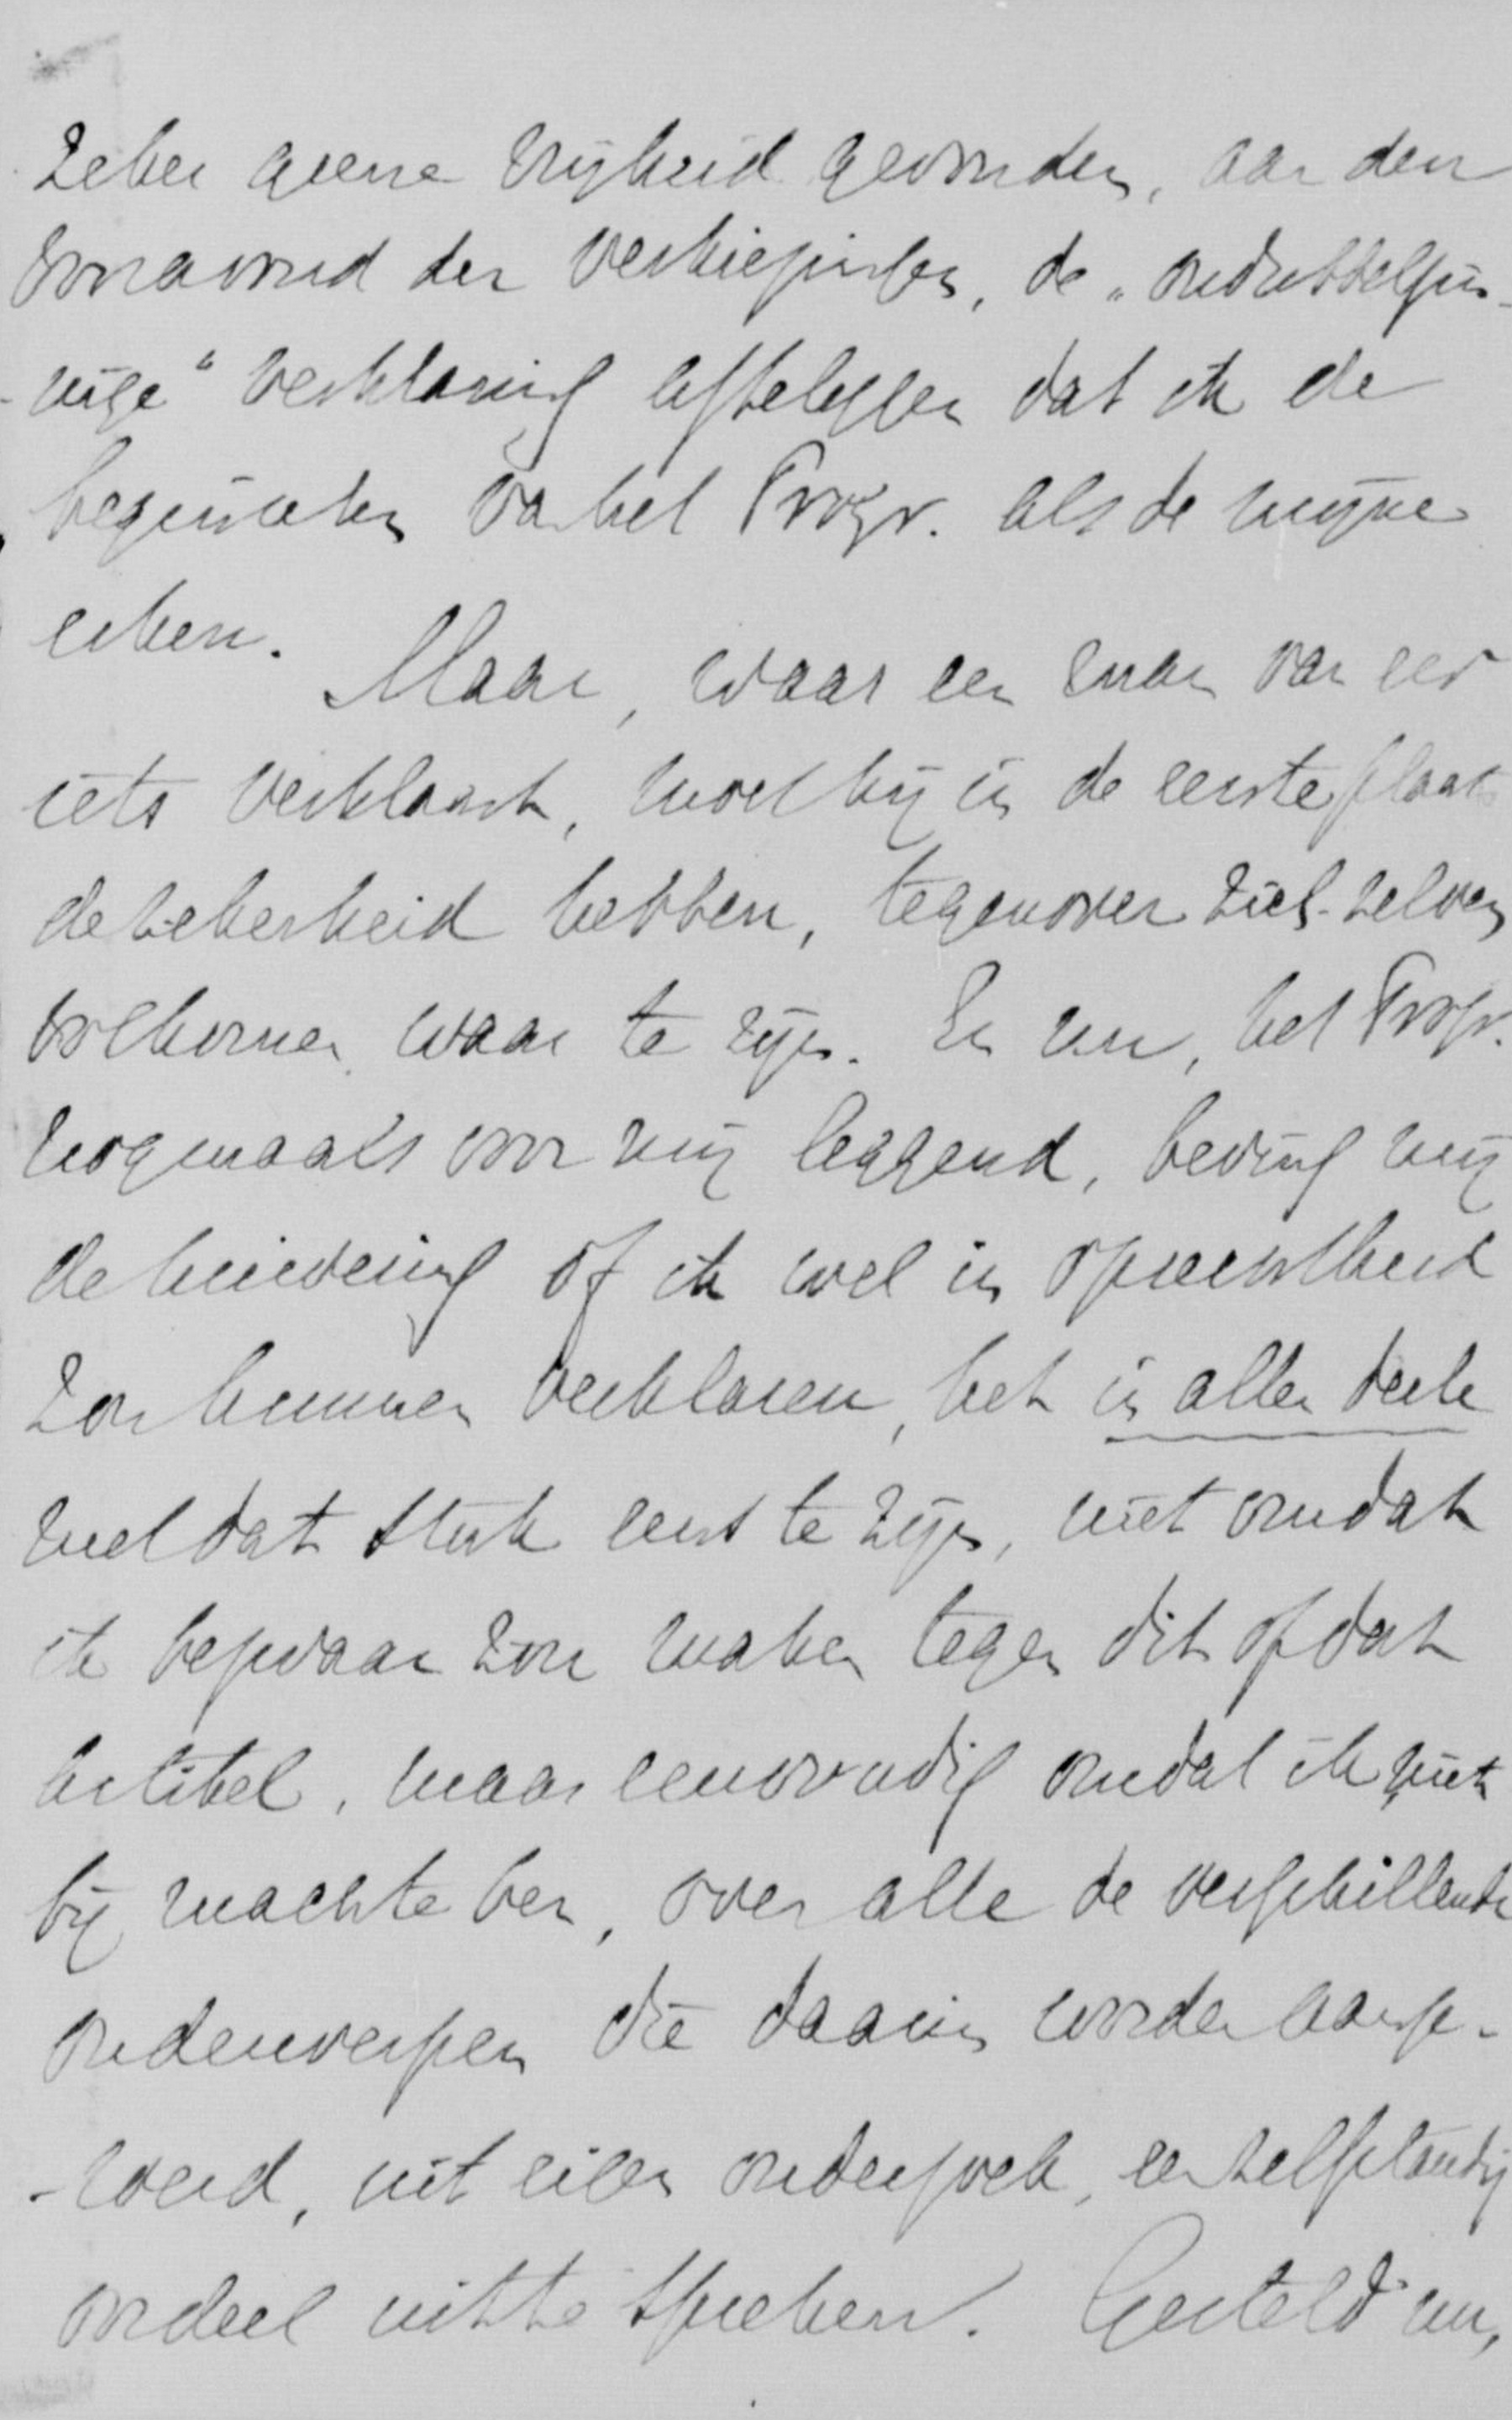 zeker geene vrijheid gevonden, aan den
vooravond der verkiezingen, de „ondubbelzin-
-nige" verklaring afteleggen dat ik de
beginselen van het Progr. als de mijne
erken.
Maar, waar een man van eer
iets verklaart, moet hij in de eerste plaats
de zekerheid hebben, tegenover zich-zelven
volkomen waar te zijn. En nu, het Progr.
nogmaals voor mij leggend, beving mij
de huivering of ik wel in oprechtheid
zou kunnen verklaren, het in allen deele
met dat stuk eens te zijn, niet omdat
ik bezwaar zou maken tegen dit of dat
artikel, maar eenvoudig omdat ik niet
bij machte ben, over alle de verschillende
onderwerpen die daarin worden aange-
-roerd, uit eigen onderzoek, een zelfstandig
oordeel uit te spreken. Gesteld nu,